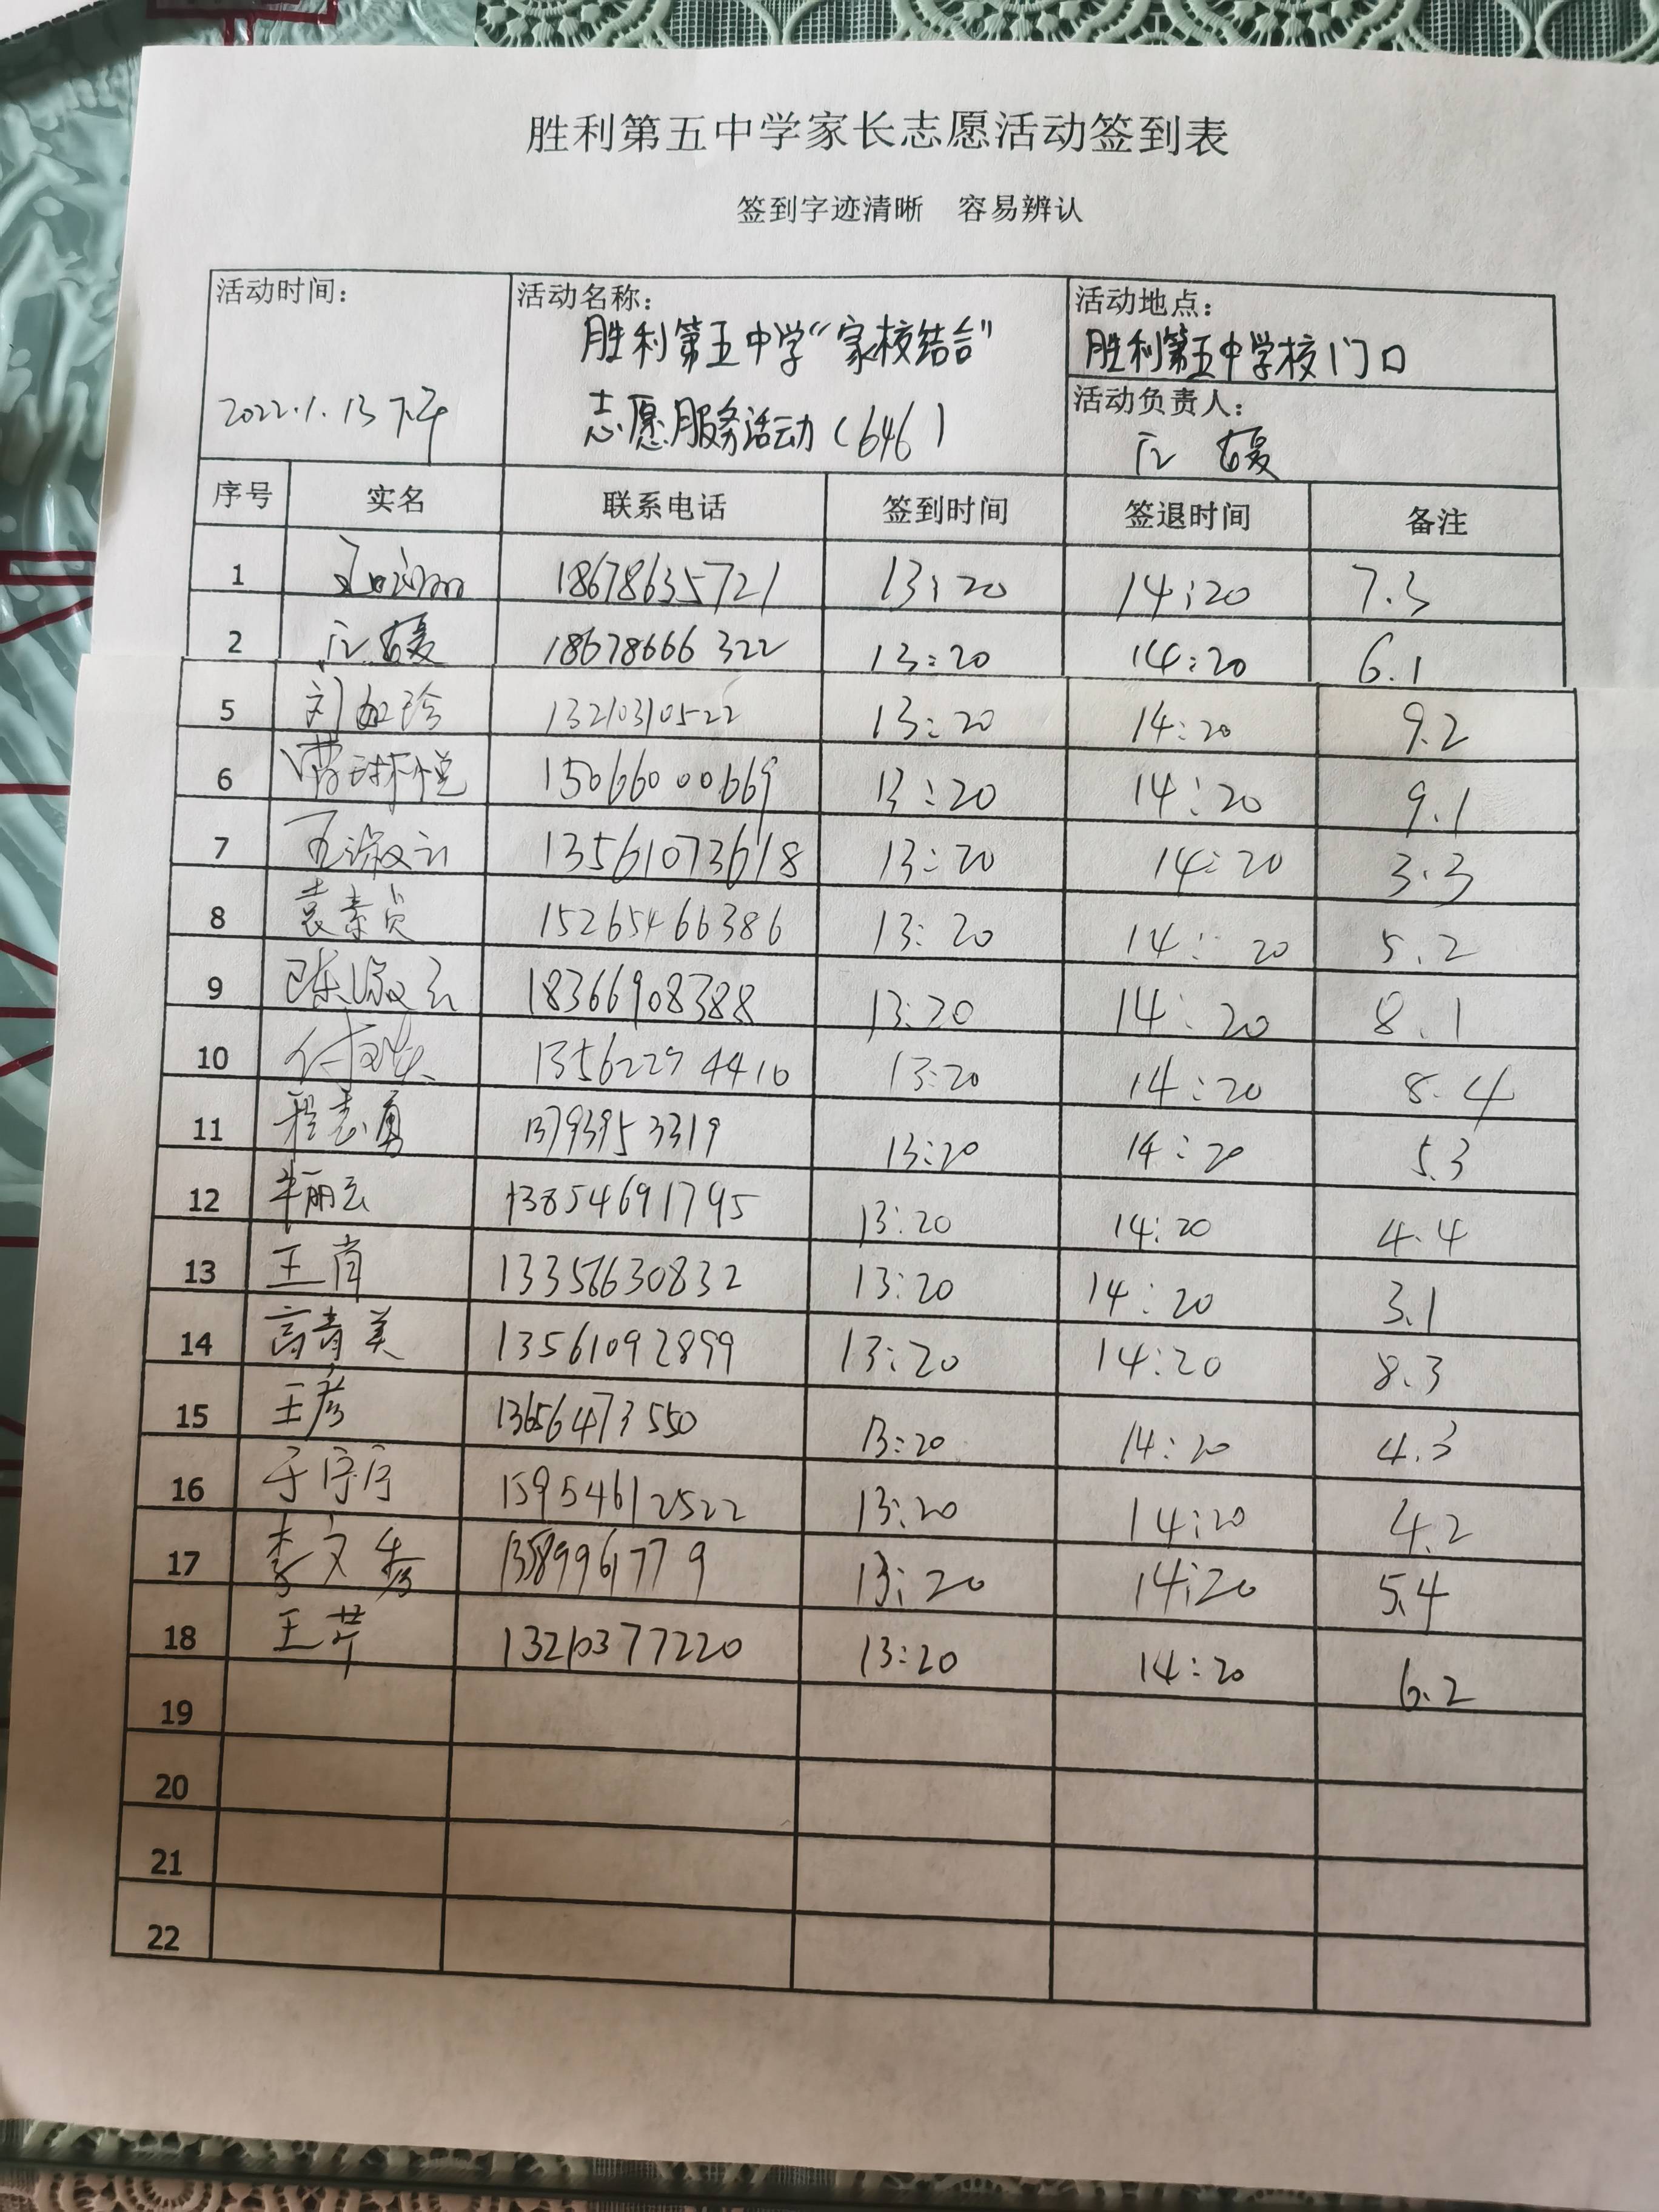 胜利第五中学家长志愿活动签到表
签到字迹清晰 容易辨认
活动时间: 2022.1.13 下午
活动名称: 胜利第五中学“家校结合”
志愿服务活动(646)
活动地点:
胜利第五中学校门口
活动负责人:
序号 实名 联系电话 签到时间 签退时间 备注
1 18678635721 13:20 14:20 7.3
2 18678666322 13:20 14:20 6.1
5 刘如珍 13210310522 13:20 14:20 9.2
6 15066000669 13:20 14:20 9.1
7 王淑云 13561073618 13:20 14:20 3.3
8 袁素贞 15265466386 13:20 14:20 5.2
9 陈淑云 18366908388 13:20 14:20 8.1
10 13562294410 13:20 14:20 8.4
11 程志勇 13793953319 13:20 14:20 5.3
12 丽云 13854691795 13:20 14:20 4.4
13 王肖 13356630832 13:20 14:20 3.1
14 高青美 13561092899 13:20 14:20 8.3
15 王彦 13656473550 13:20 14:20 4.3
16 于序序 15954612522 13:20 14:20 4.2
17 李文秀 13589961779 13:20 14:20 5.4
18 王芹 13210377220 13:20 14:20 6.2
19
20
21
22